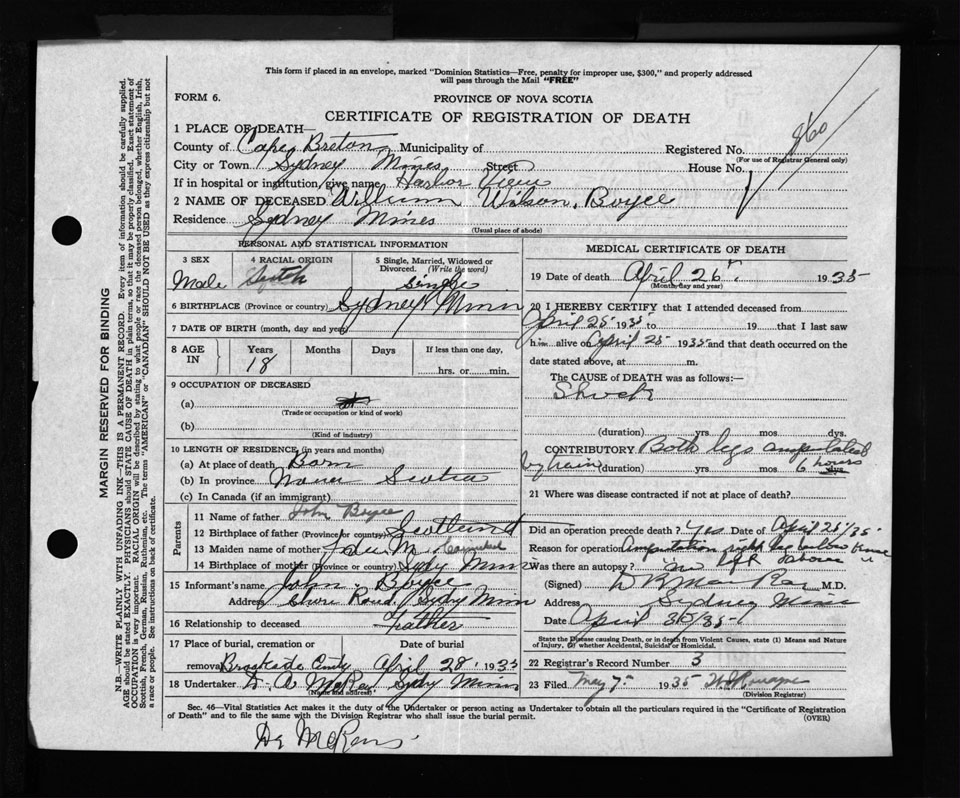 This form if placed in an envelope, marked "Dominion Statistics—Free, penalty for improper use, $300," and properly addressed
will pass through the Mail "FREE"
FORM 6.
PROVINCE OF NOVA SCOTIA
CERTIFICATE OF REGISTRATION OF DEATH
860
1 PLACE OF DEATH—
County of Cape Breton Municipality of Registered No.
(For use of Registrar General only)
City or Town Sydney Mines Street House No.
If in hospital or institution, give name Harbor View
2 NAME OF DECEASED William Wilson Boyce
Residence Sydney Mines
(Usual place of abode)
PERSONAL AND STATISTICAL INFORMATION
3 SEX 4 RACIAL ORIGIN 5 Single, Married, Widowed or Divorced. (Write the word)
Male Single
6 BIRTHPLACE (Province or country) Sydney Mines
7 DATE OF BIRTH (month, day and year)
8 AGE IN Years Months Days If less than one day,
18 hrs. or min.
9 OCCUPATION OF DECEASED
(a)
(Trade or occupation or kind of work)
(b)
(Kind of industry)
10 LENGTH OF RESIDENCE (in years and months)
(a) At place of death Born
(b) In province Nova Scotia
(c) In Canada (if an immigrant)
Parents
11 Name of father John Boyce
12 Birthplace of father (Province or country) Scotland
13 Maiden name of mother
14 Birthplace of mother (Province or country) Sydy Mines
15 Informant's name John Boyce
Address Shore Road, Sydy Mines
16 Relationship to deceased Father
17 Place of burial, cremation or Date of burial
removal April 28, 1935
18 Undertaker D. A. McRae Sydy Mines
(Name and address)
MEDICAL CERTIFICATE OF DEATH
19 Date of death April 26, 1935
(Month, day and year)
20 I HEREBY CERTIFY that I attended deceased from
April 25 1935 to 19 that I last saw
him alive on April 25 1935 and that death occurred on the
date stated above, at m.
The CAUSE OF DEATH was as follows:—
Shock
(duration) yrs. mos dys.
CONTRIBUTORY Both legs amputated
by train (duration) yrs. mos 6 hours dys.
21 Where was disease contracted if not at place of death?
Did an operation precede death? Yes Date of April 25/35
Reason for operation Amputation right leg below knee
Was there an autopsy? no left above
(Signed) M.D.
Address Sydney Mines
Date April
State the Disease causing Death, or in death from Violent Causes, state (1) Means and Nature
of Injury, or (2) whether Accidental, Suicidal or Homicidal.
22 Registrar's Record Number 3
23 Filed May 7 1935
(Division Registrar)
Sec. 46—Vital Statistics Act makes it the duty of the Undertaker or person acting as Undertaker to obtain all the particulars required in the "Certificate of Registration
of Death" and to file the same with the Division Registrar who shall issue the burial permit.
(OVER)
MARGIN RESERVED FOR BINDING
N.B.—WRITE PLAINLY WITH UNFADING INK—THIS IS A PERMANENT RECORD. Every item of information should be carefully supplied.
AGE should be stated EXACTLY. PHYSICIANS should STATE CAUSE OF DEATH in plain terms, so that it may be properly classified. Exact statement of
OCCUPATION is very important. RACIAL ORIGIN will be described by stating to what people or race the deceased person belonged, whether English, Irish,
Scottish, French, German, Russian, Ruthenian, etc. The terms "AMERICAN" or "CANADIAN" SHOULD NOT BE USED as they express citizenship but not
a race or people. See instructions on back of certificate.